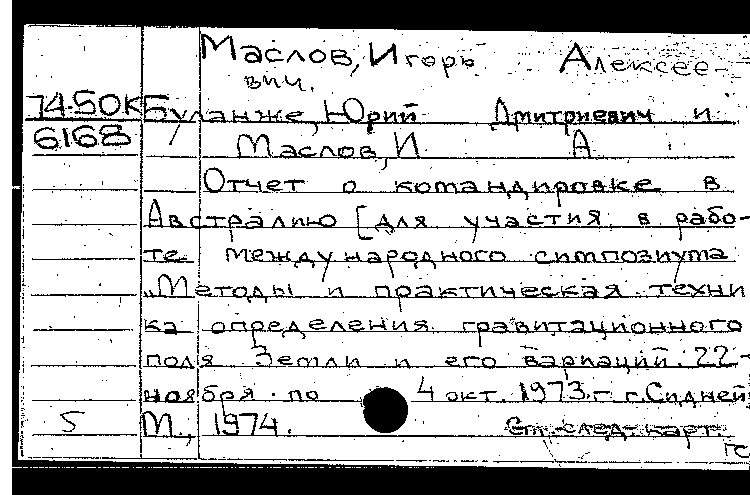 Маслов, Игорь Алексее-
вич.
74-50К Буланже, Юрий Дмитриевич и
6168 Маслов, И А
Отчет о командировке в
Австралию [для участия в рабо-
те международного симпозиума
„Методы и практическая техни
ка определения гравитационного
поля Земли и его вариаций. 22-
ноября по 4 окт. 1973.г г. Сидней
5 М., 1974. См. след. карт.